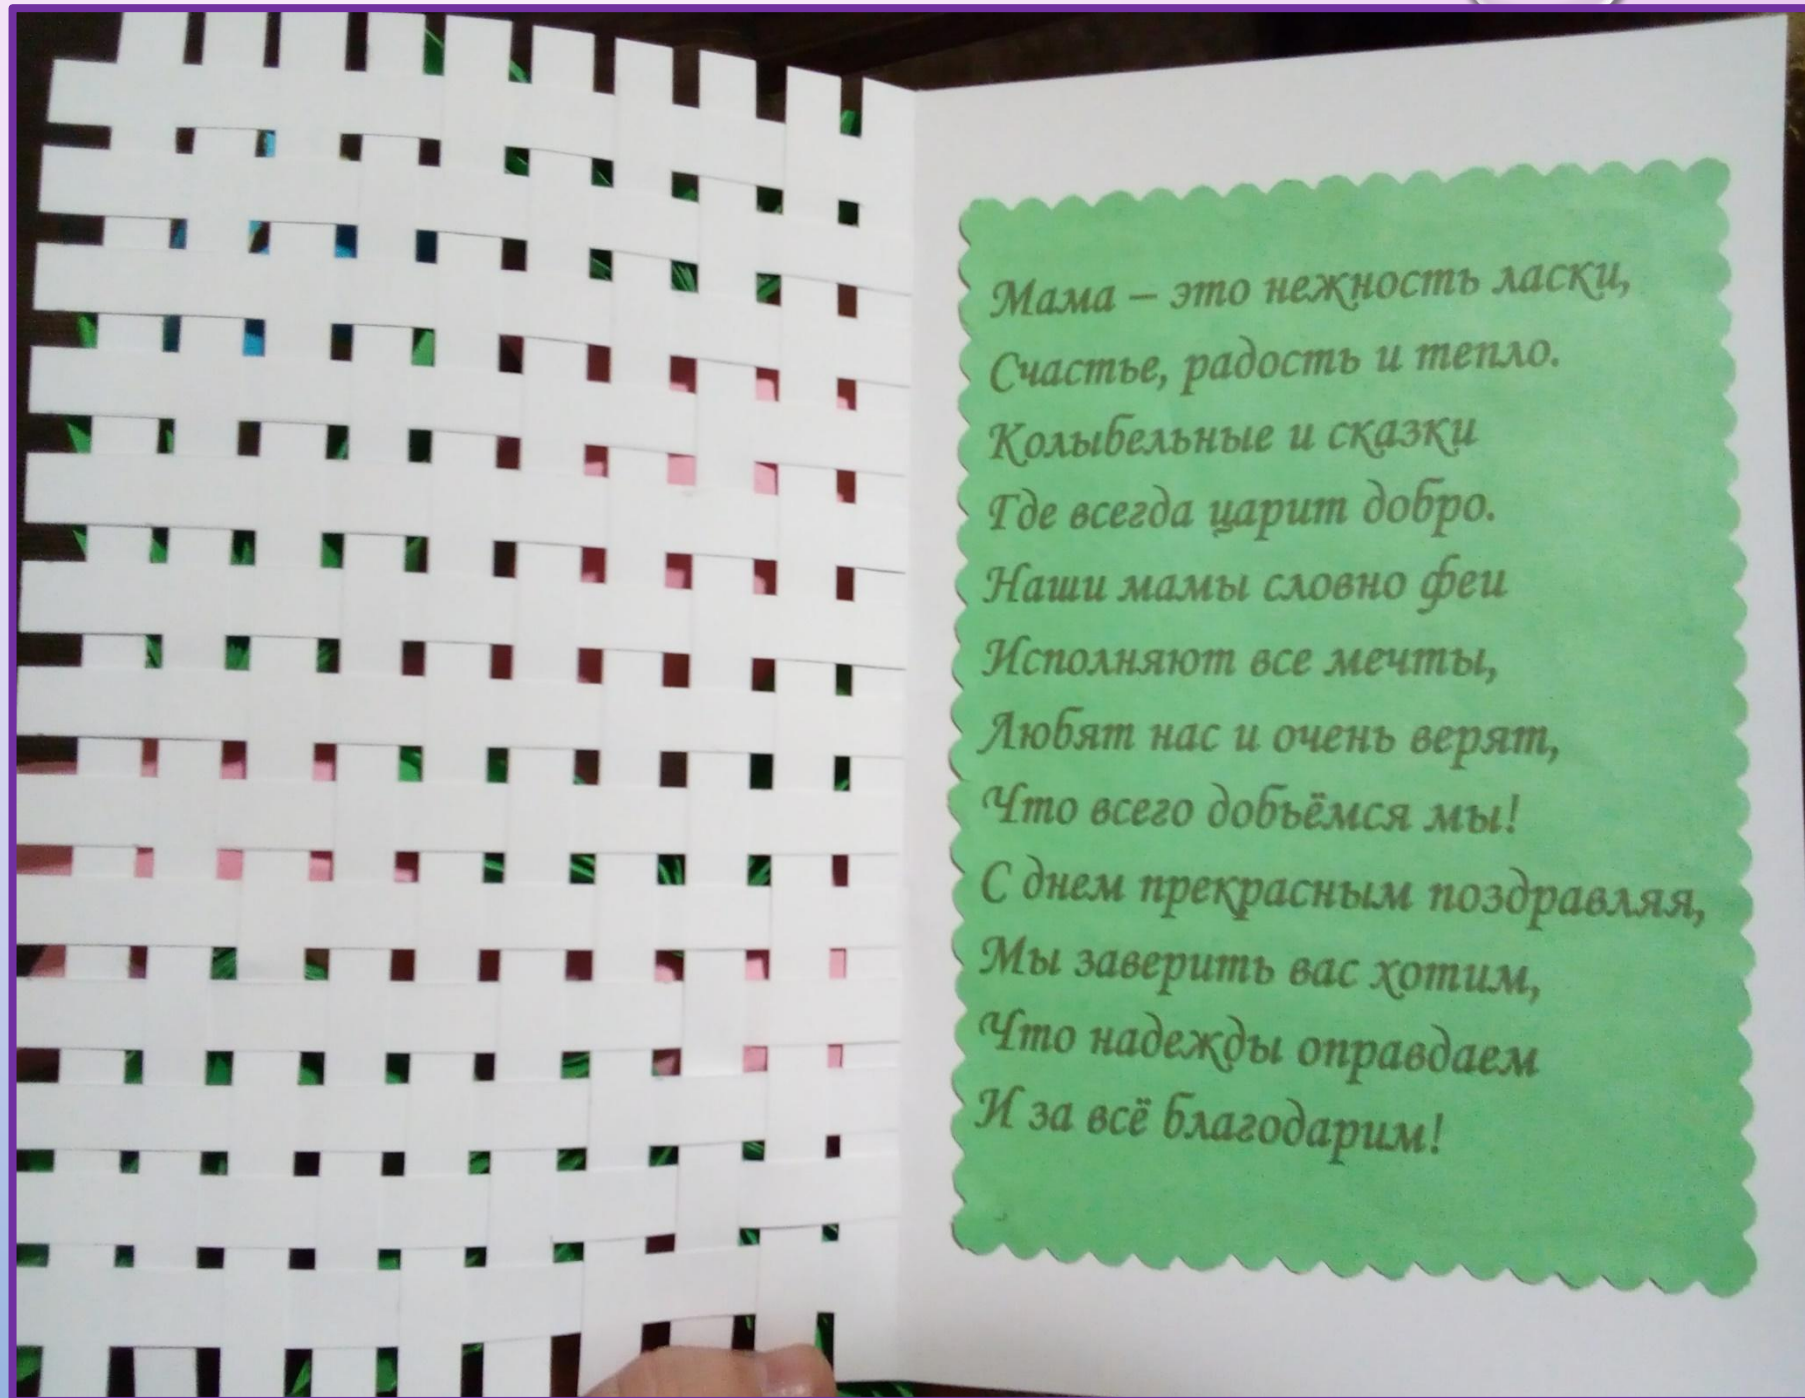 Мама – это нежность ласки,
Счастье, радость и тепло.
Колыбельные и сказки
Где всегда царит добро.
Наши мамы словно феи
Исполняют все мечты,
Любят нас и очень верят,
Что всего добьёмся мы!
С днем прекрасным поздравляя,
Мы заверить вас хотим,
Что надежды оправдаем
И за всё благодарим!